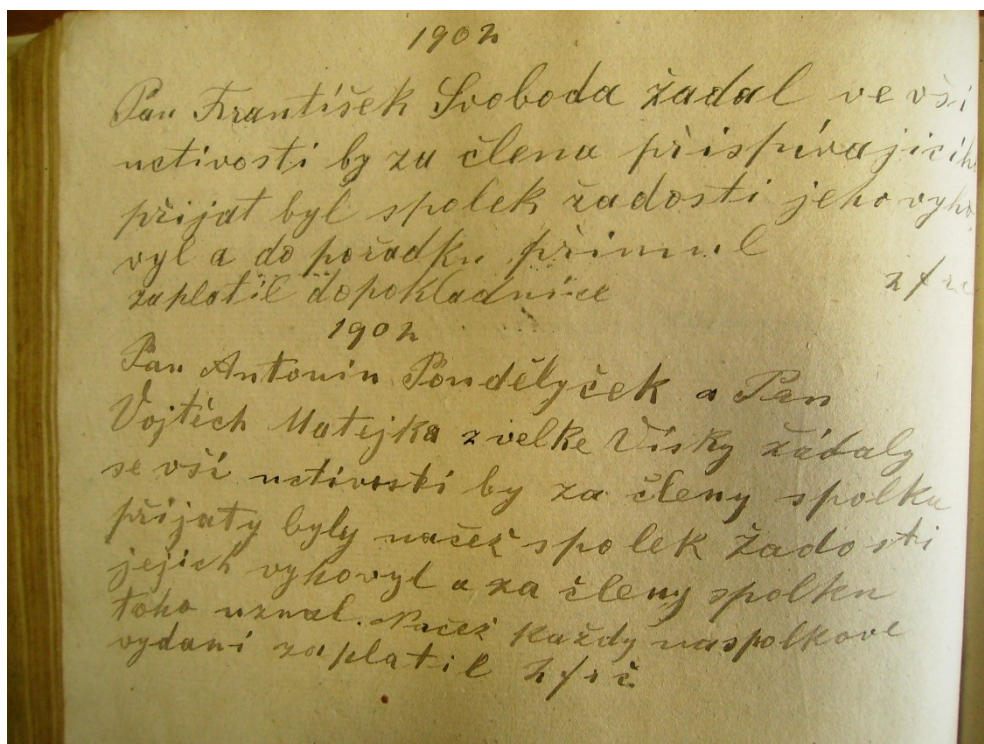 1902
Pan František Svoboda žadal ve vši
uctivosti by za člena přispívajicih
přijat byl spolek žadosti jeho vyho
vyl a do pořadku přimul
zaplatil dopokladnice 2 f
1902
Pan Antonin Pondělyček a Pan
Vojtěch Matejka z velke Visky žádaly
se vší uctivosti by za členy spolku
přijaty byly načež spolek žadosti
jejich vyhovyl a za členy spolku
toho uznal. Načež každy naspolkove
vydani zaplatil 2 f